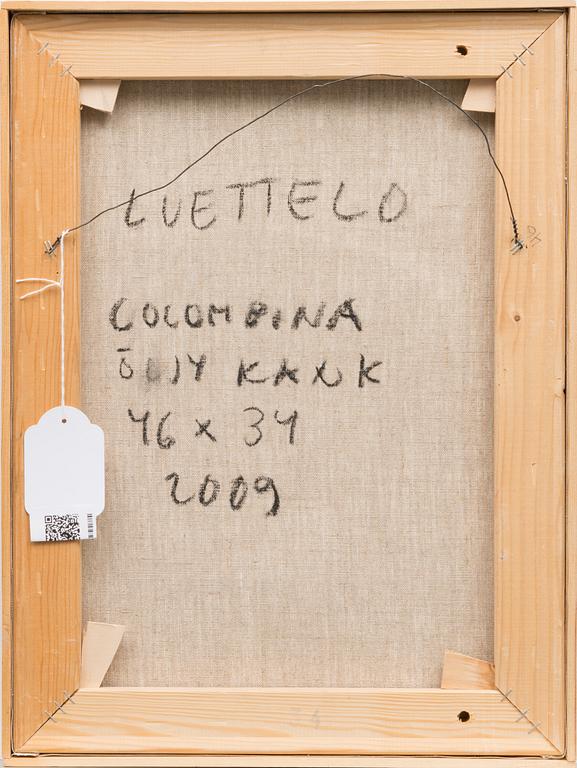 LUETTELO
COLOMBINA
ÖLJY KANK
46 x 34
2009